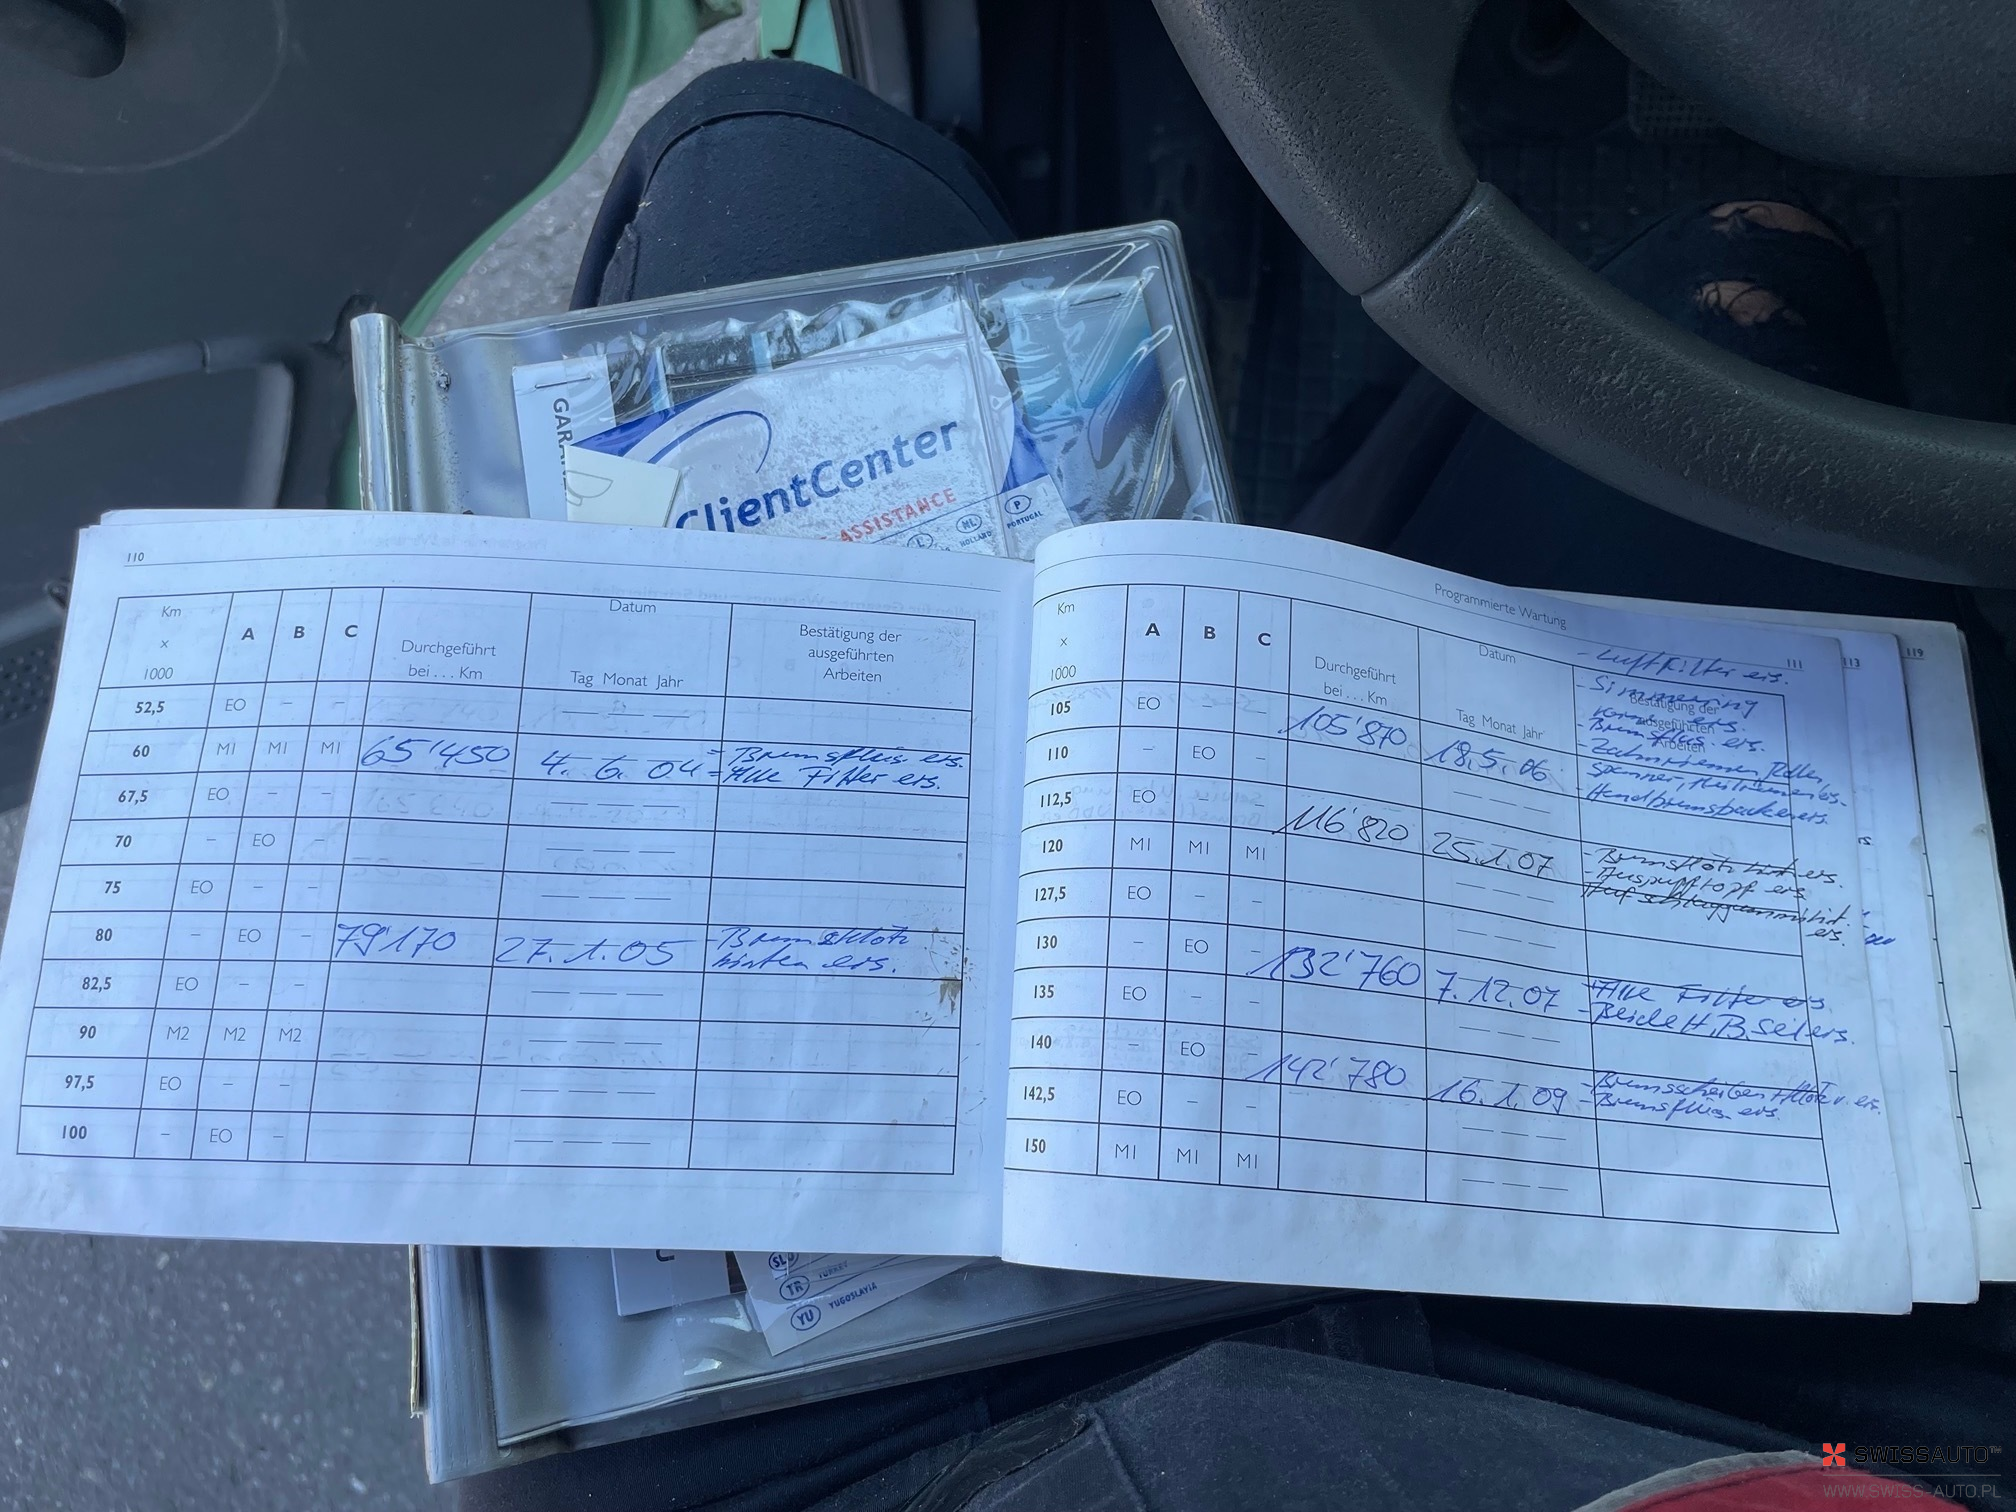 GARAN
ClientCenter
ASSISTANCE
L
NL
HOLLAND
P
PORTUGAL
110
Km x 1000 A B C Durchgeführt bei . . . Km Datum Tag Monat Jahr Bestätigung der ausgeführten Arbeiten
52,5 EO – –
60 MI MI MI 65'450 4. 6. 04 - Bremsflüss. ers.
- Alle Filter ers.
67,5 EO – –
70 – EO –
75 EO – –
80 – EO – 79'170 27. 1. 05 - Bremsklötz
hinten ers.
82,5 EO – –
90 M2 M2 M2
97,5 EO – –
100 – EO –
Programmierte Wartung
111
113
119
- Luftfilter ers.
Km x 1000 A B C Durchgeführt bei . . . Km Datum Tag Monat Jahr Bestätigung der ausgeführten Arbeiten
- Simmering
ers.
- Bremsflüs. ers.
- Zahnriemen, Rollen,
Spanner, ers.
- Handbremsbacken ers.
105 EO – – 105'870 18. 5. 06
110 – EO –
112,5 EO – – 116'820 25. 1. 07
120 MI MI MI - Bremsklötz hint. ers.
- Auspufftopf ers.
ers.
127,5 EO – –
130 – EO – 132'760 7. 12. 07 - Alle Filter ers.
- Beide H. B. Seil ers.
135 EO – –
140 – EO – 142'780 16. 1. 09 - Bremsscheiben + Klötz v. ers.
- Bremsflüs. ers.
142,5 EO – –
150 MI MI MI
SLO
TR TURKEY
YU YUGOSLAVIA
SWISSAUTO™
WWW.SWISS-AUTO.PL